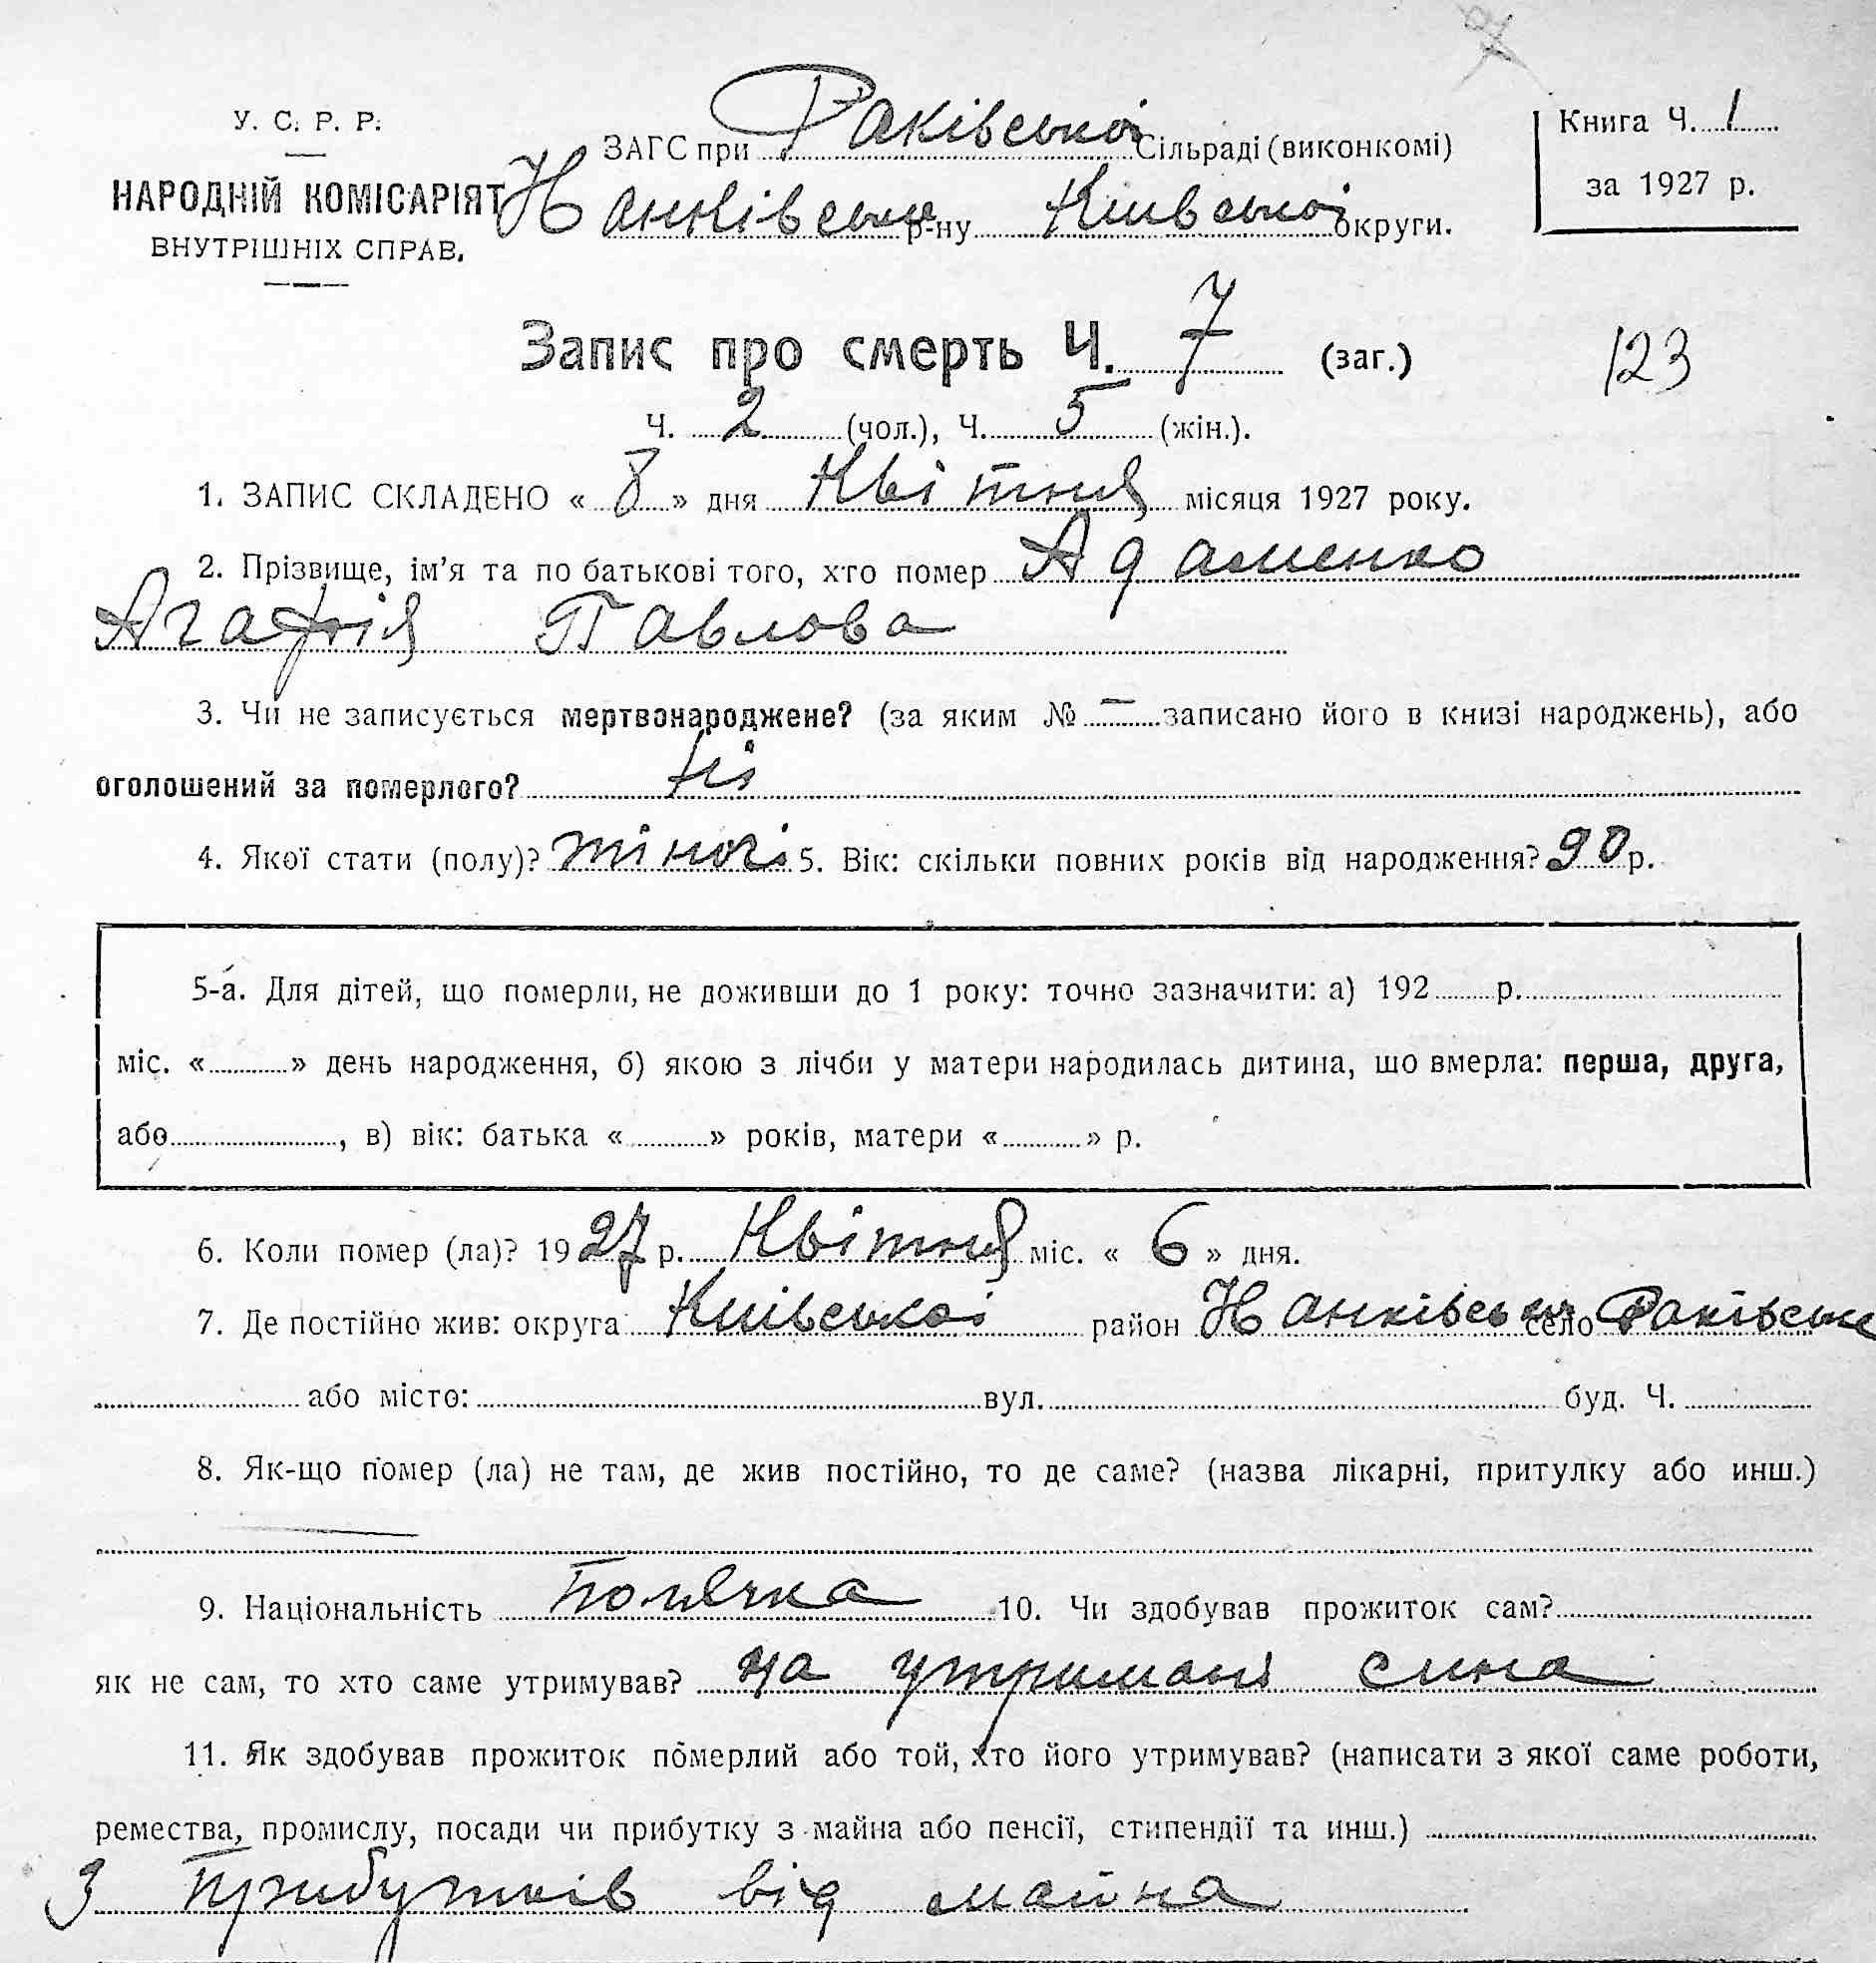 У. С. Р. Р.
НАРОДНІЙ КОМІСАРІЯТ
ВНУТРІШНІХ СПРАВ.
ЗАГС при Раківської Сільраді (виконкомі)
р-ну Київської округи.
Книга Ч. 1
за 1927 р.
Запис про смерть Ч. 7 (заг.)
123
Ч. 2 (чол.), Ч. 5 (жін.).
1. ЗАПИС СКЛАДЕНО « 8 » дня Квітня місяця 1927 року.
2. Прізвище, ім'я та по батькові того, хто помер Адаменко
Агафія Павлова
3. Чи не записується мертвонароджене? (за яким № — записано його в книзі народжень), або
оголошений за померлого? ні
4. Якої стати (полу)? жіночі 5. Вік: скільки повних років від народження? 90 р.
5-а. Для дітей, що померли, не доживши до 1 року: точно зазначити: а) 192 р.
міс. « » день народження, б) якою з лічби у матери народилась дитина, що вмерла: перша, друга,
або , в) вік: батька « » років, матери « » р.
6. Коли помер (ла)? 1927 р. Квітня міс. « 6 » дня.
7. Де постійно жив: округа Київської район село
або місто: вул. буд. Ч.
8. Як-що помер (ла) не там, де жив постійно, то де саме? (назва лікарні, притулку або инш.)
9. Національність Полячка 10. Чи здобував прожиток сам?
як не сам, то хто саме утримував? на утримані сина
11. Як здобував прожиток померлий або той, хто його утримував? (написати з якої саме роботи,
ремества, промислу, посади чи прибутку з майна або пенсії, стипендії та инш.)
З прибутків від майна